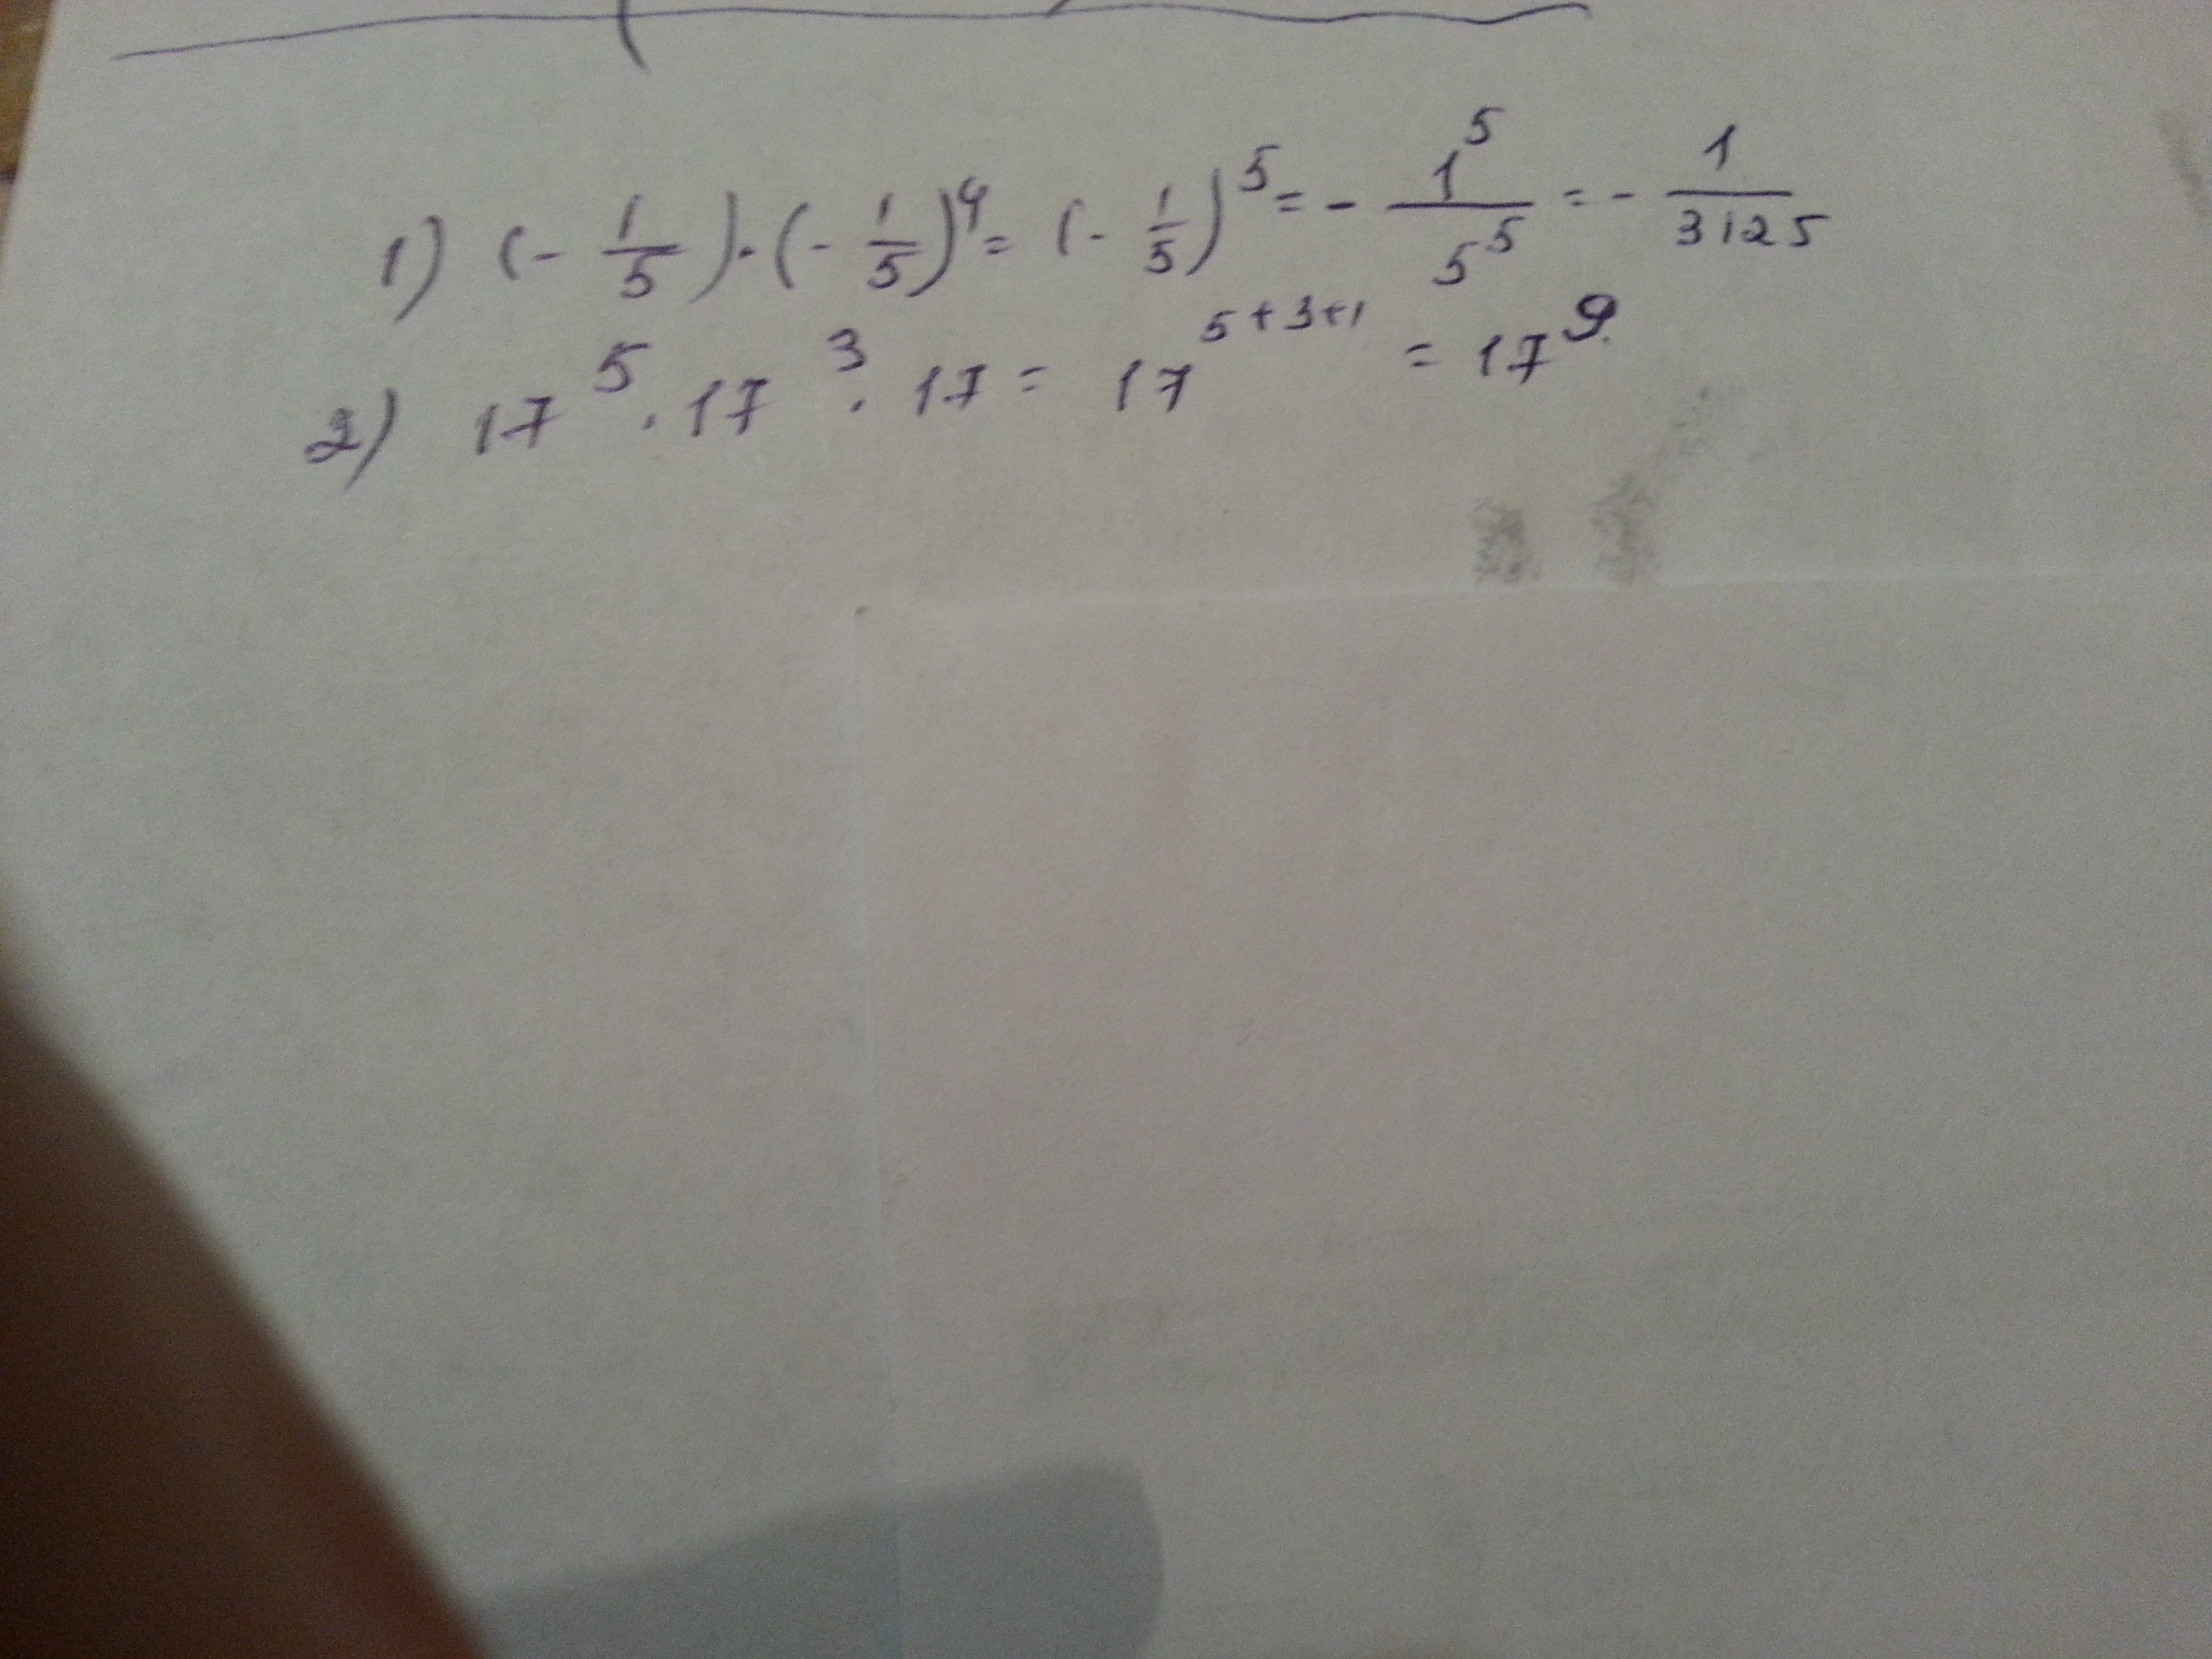 1) (- 1/5) · (- 1/5)⁴ = (- 1/5)⁵ = - 1⁵/5⁵ = - 1/3125
2) 17⁵ · 17³ · 17 = 17⁵⁺³⁺¹ = 17⁹.